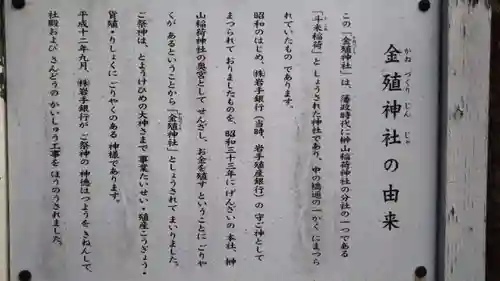 金殖神社の由来
かねづくりじんじゃ
この「金殖神社」は、藩政時代に榊山稲荷神社の分社の一つである
「斗米稲荷」としょうされた神社であり、中の橋通の一かくにまつら
れていたものであります。
昭和のはじめ、㈱岩手銀行(当時、岩手殖産銀行)の守ご神として
まつられておりましたものを、昭和三十三年にげんざいの本社、榊
山稲荷神社の奥宮としてせんざし、お金を殖すということにごりや
くがあるということから「金殖神社」としょうされてまいりました。
ご祭神は、とようけひめの大神さまで事業たいせい・殖産こうぎょう・
貨殖・りしょくにごりやくのある神様であります。
平成十二年九月、㈱岩手銀行がご祭神の神徳はつようをきねんして、
社殿およびさんどうのかいしゅう工事をほうのうされました。